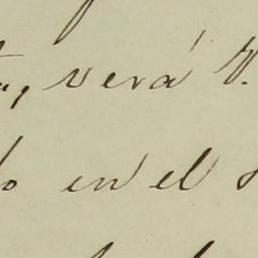 , verá V.
o en el